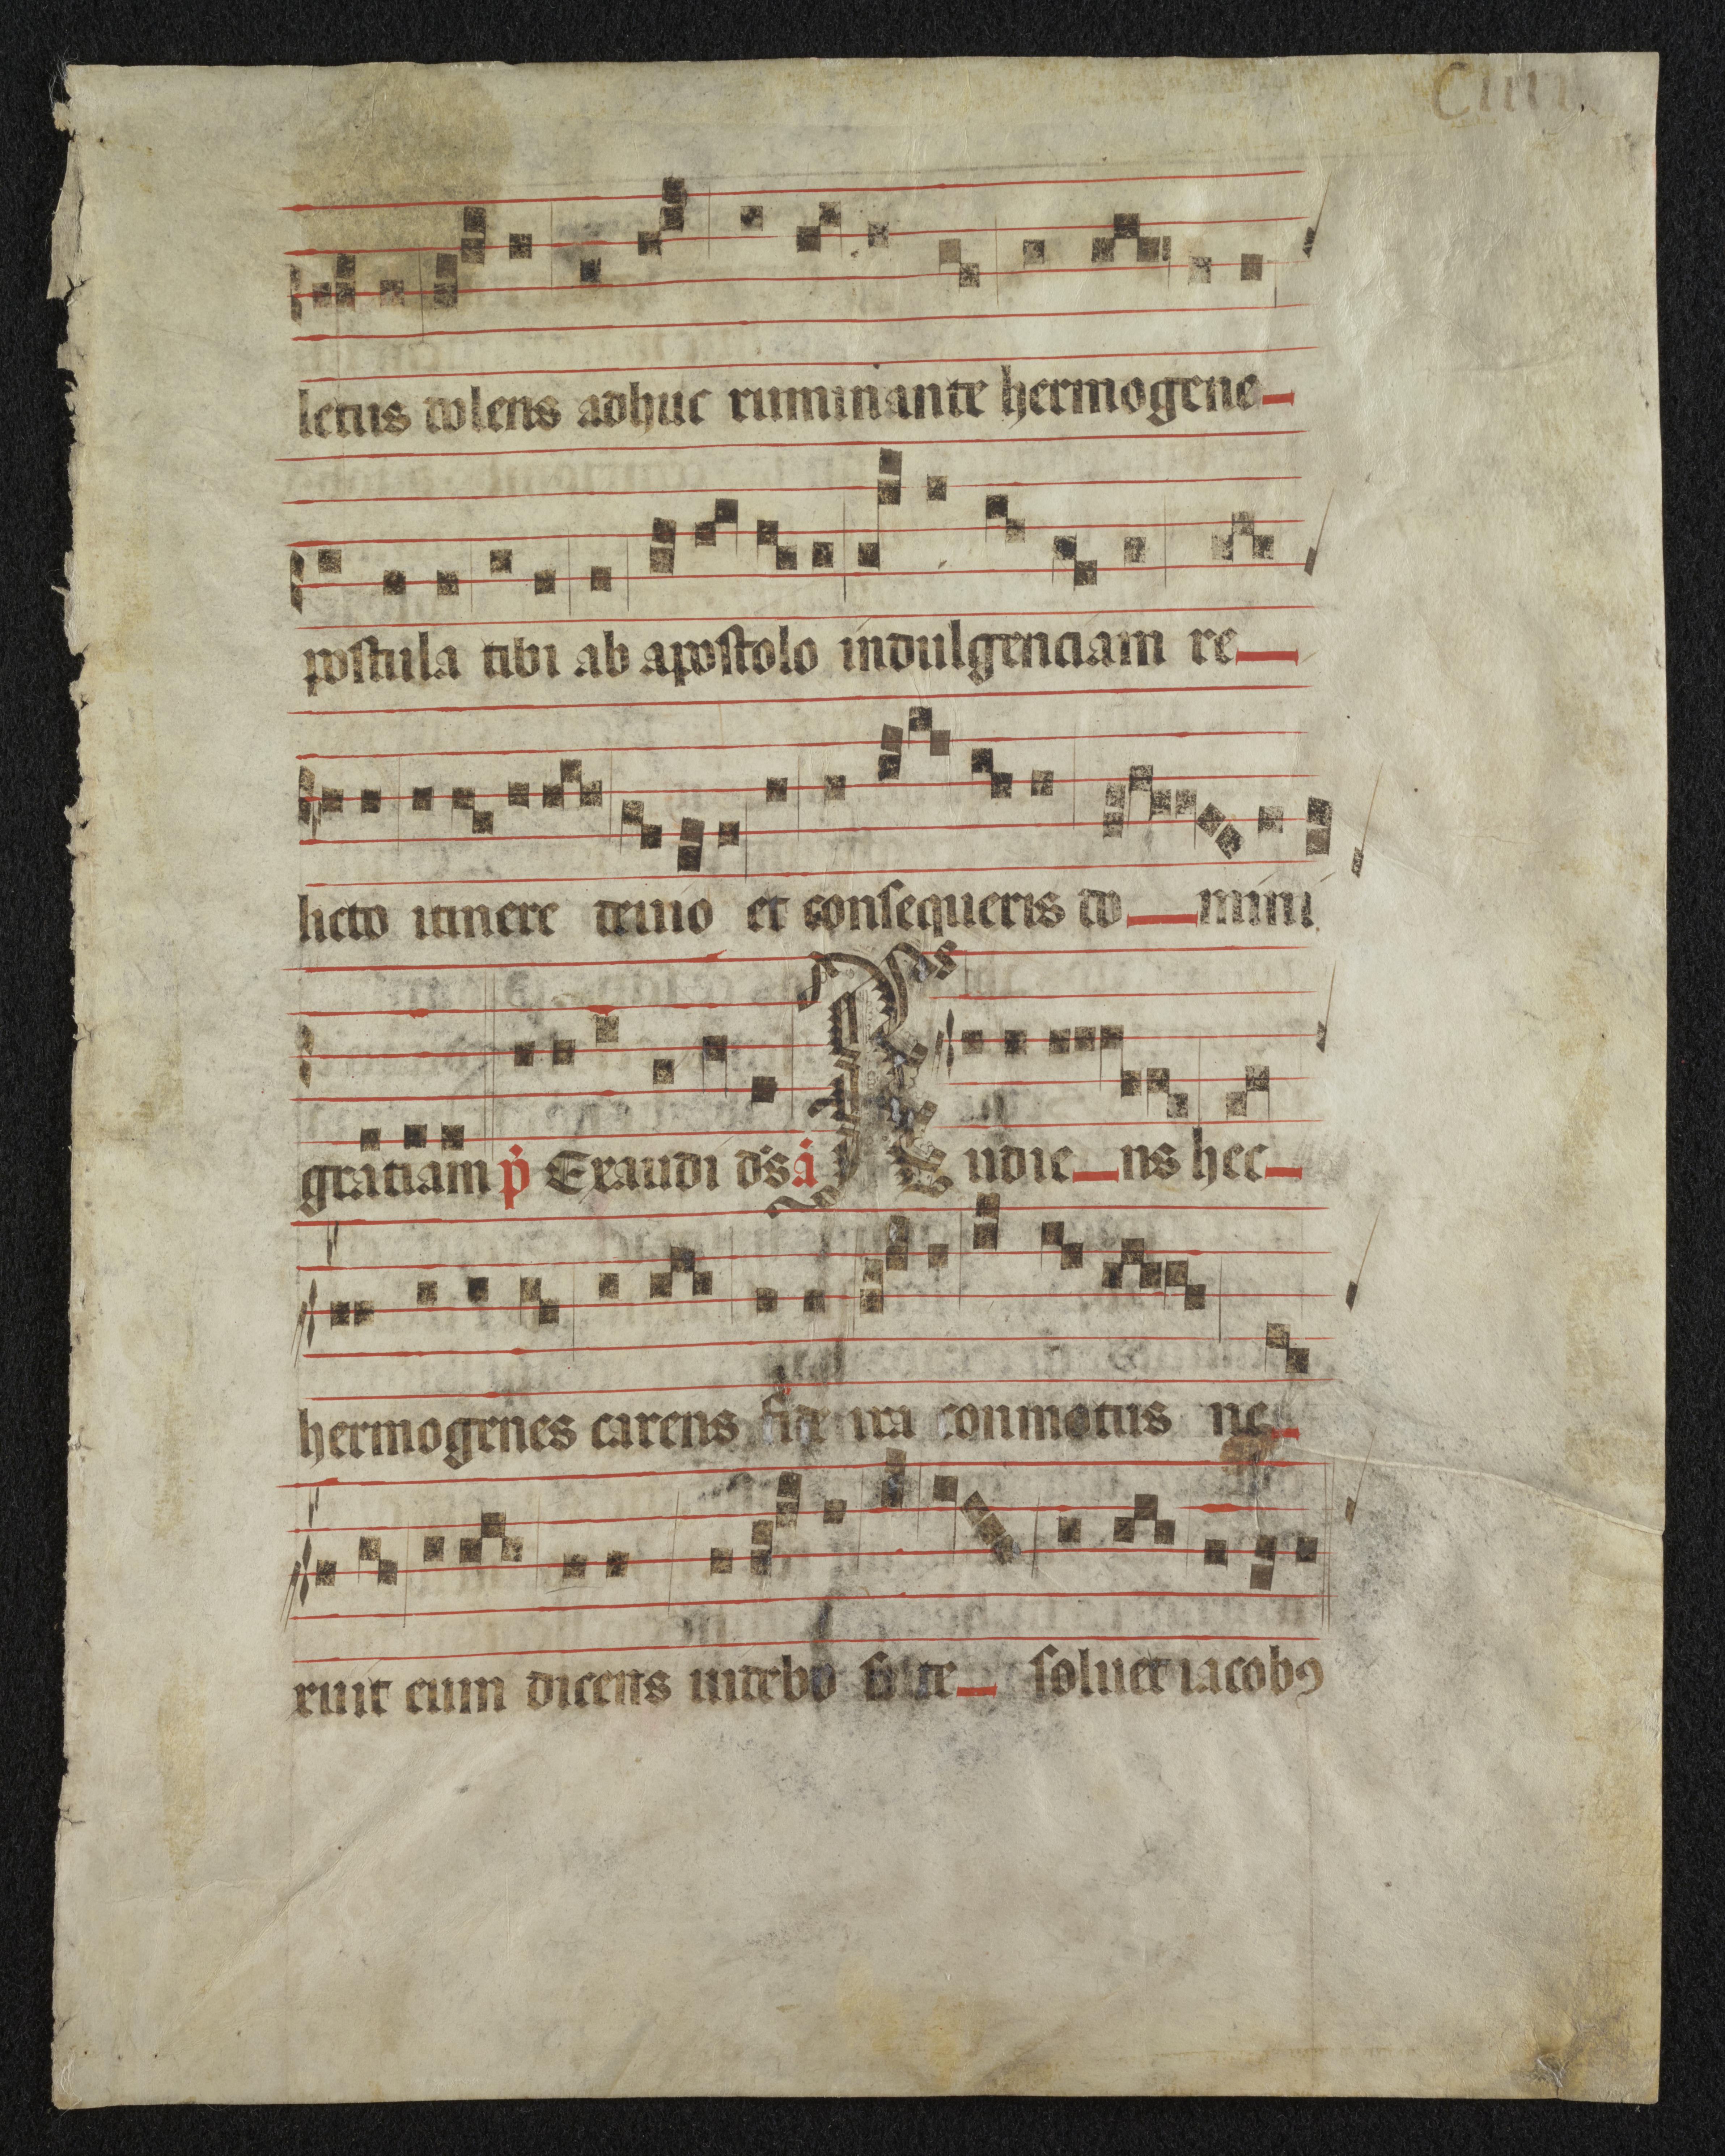 letus dolens adhuc ruminante hermogene
postula tibi ab apostolo indulgenciam re
licto itinere demo et consequeris do mini
gratiam p̄ Exaudi d's a Audie ns hec
hermogenes carens fide ira conmotus ne
ruit eum dicens uidebo si te soluet iacobꝯ